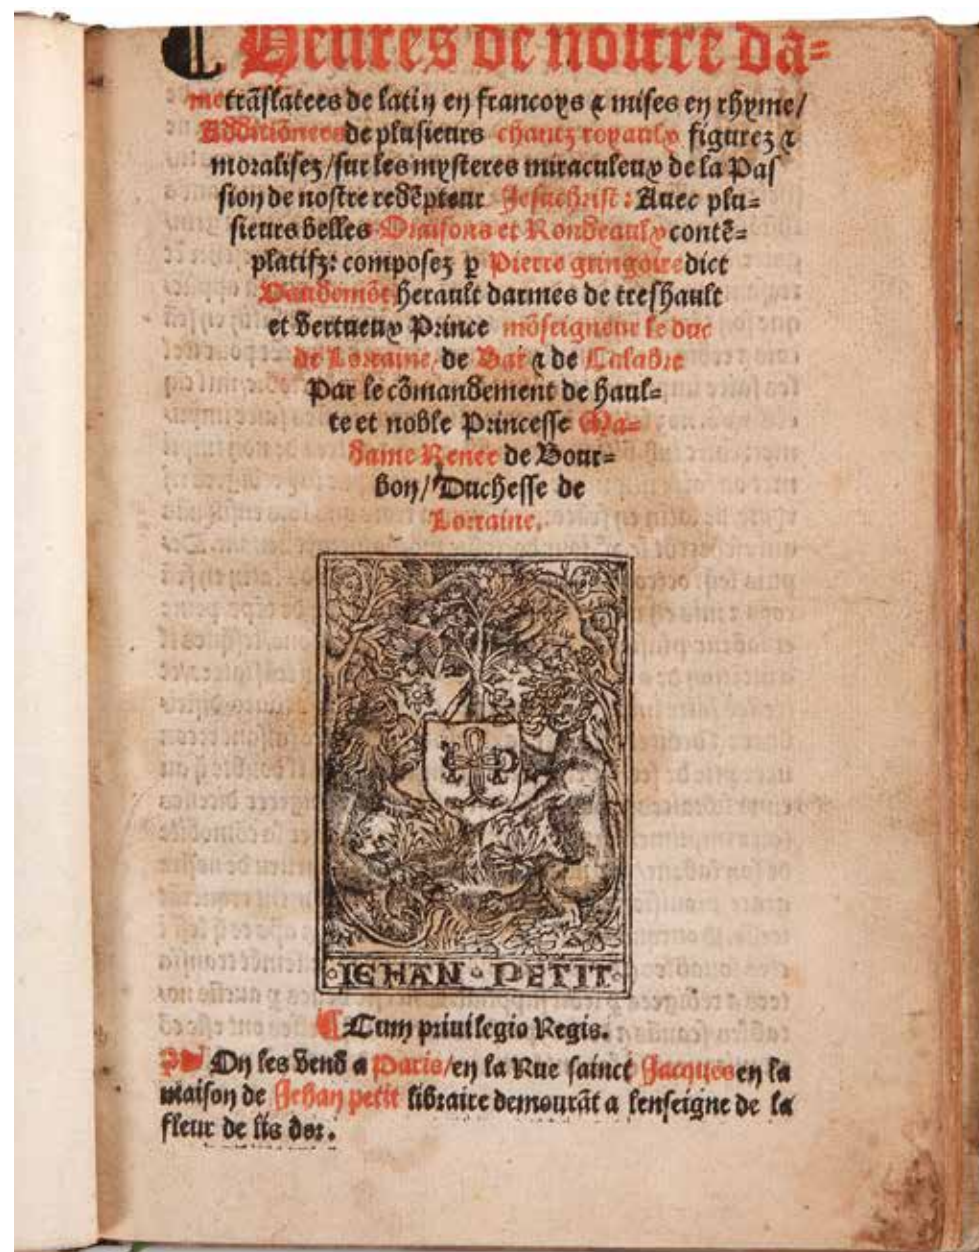 Heures de nostre da=
me trãslatees de latin en francoys & mises en rhyme/
Additiõnees de plusieurs chantz royaulx figurez &
moralisez/sur les mysteres miraculeux de la Pas
sion de nostre redẽpteur Jesuchrist: Auec plu=
sieurs belles Oraisons et Rondeaulx contẽ=
platifz: composez p Pierre gringoire dict
Vaudemõt/herault darmes de treshault
et vertueux Prince mõseigneur le duc
de Lorraine/de Bar & de Calabre
Par le cõmandement de haul=
te et noble Princesse Ma=
dame Renee de Bour=
bon/Duchesse de
Lorraine.
IEHAN PETIT
Cum priuilegio Regis.
On les vend a Paris/en la Rue sainct Jacques en la
maison de Jehan petit libraire demourãt a lenseigne de la
fleur de lis dor.